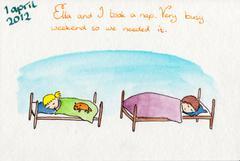 1 april
2012
Ella and I took a nap. Very busy
weekend so we needed it.